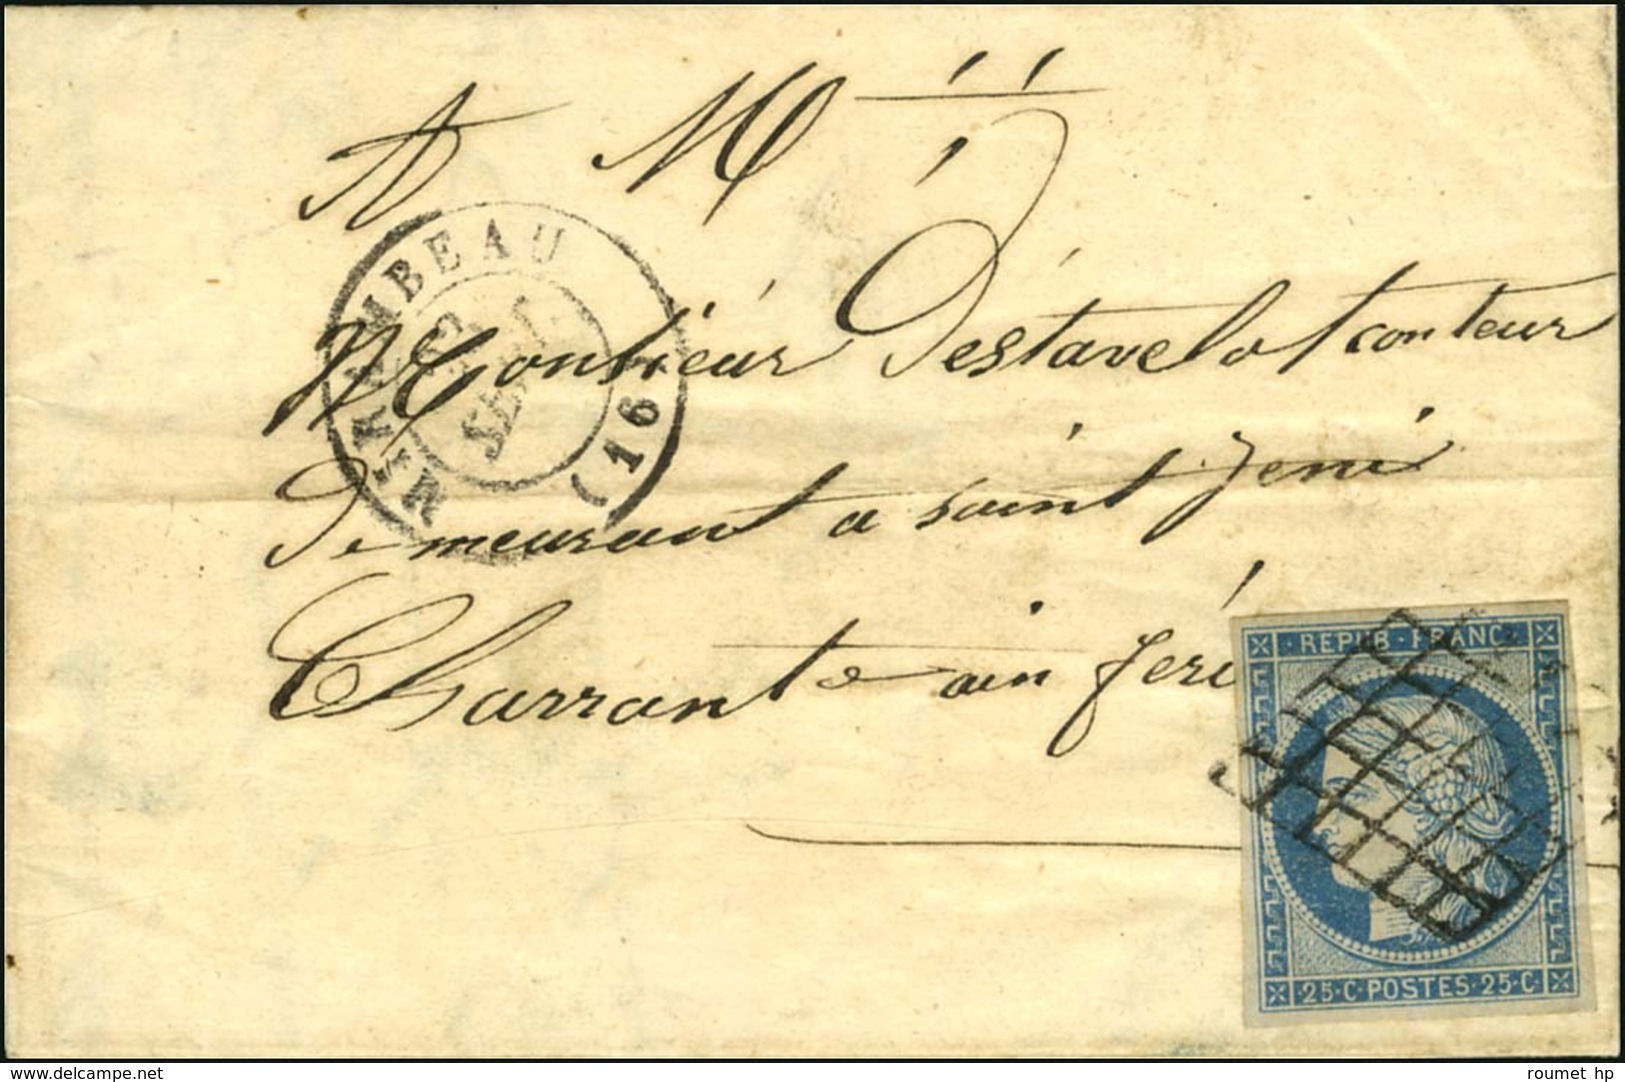 A M
Monsieur Destavelot conteur
demeurant a saint Jeni
Charrante ain feri
MIRAMBEAU
SEPT.
(16)
REPUB·FRANC
25·C·POSTES·25·C·
www.delcampe.net
roumet hp